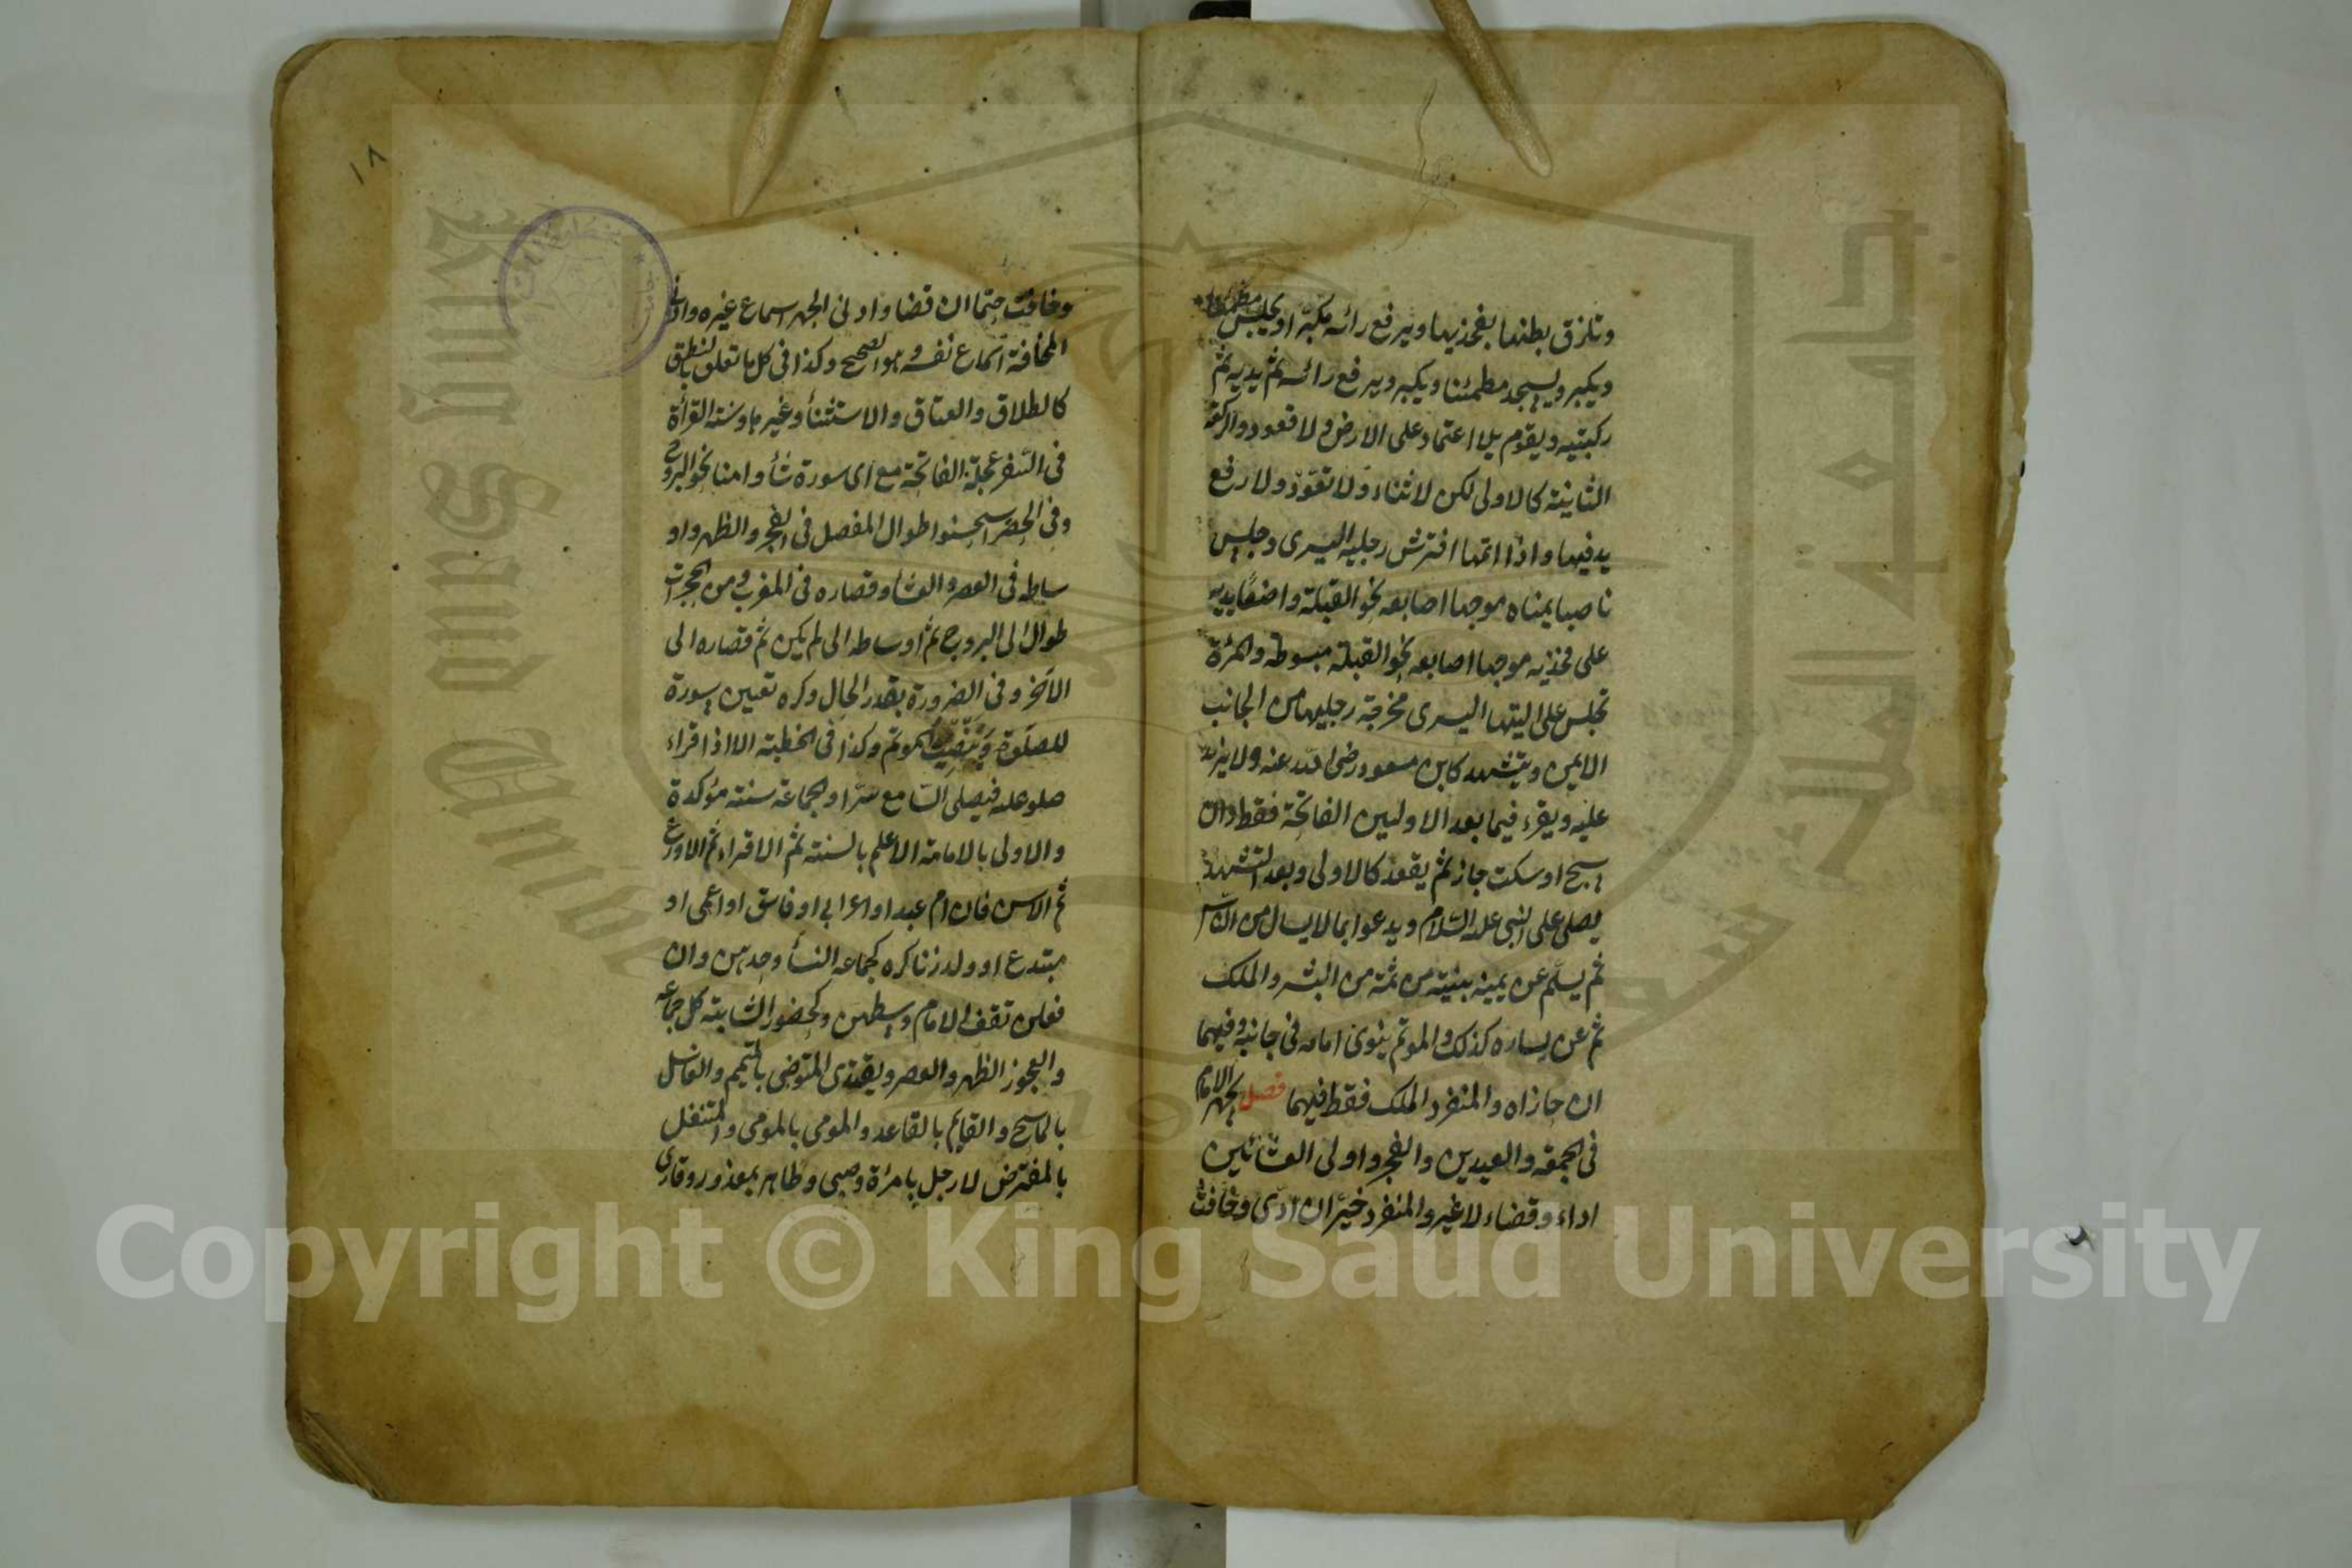 وتلزق بطنها بفخذيها ويرفع رائسه مكبّرا ويجلس مطمئنا
ويكبر ويسجد مطمئنا ويكبر ويرفع رائسه ثم يديه ثم
ركبتيه ويقوم بلا اعتماد على الارض ولا قعود والركعة
الثانية كالاولى لكن لا ثناء ولا تعوّذ ولا رفع
يد فيها واذا اتمها افترش رجليه اليسرى وجلس
ناصبا يمناه موجها اصابعه نحو القبلة واضعا يديه
على فخذيه موجها اصابعه نحو القبلة مبسوطة والمرئة
تجلس على اليتها اليسرى مخرجة رجليها من الجانب
الايمن ويتشهد كابن مسعود رضى الله عنه ولا يزيد
عليه ويقرء فيما بعد الاوليين الفاتحة فقط وان
سبح او سكت جاز ثم يقعد كالاولى وبعد التشهد
يصلى على النبى عليه السّلام ويدعوا بما لا يسال من النّاس
ثم يسلّم عن يمينه بنيته من ثمة من البشر والملك
ثم عن يساره كذلك والموتم ينوى امامه فى جانبه وفيهما
ان حازاه والمنفرد الملك فقط فيهما فصل يجهر الامام
فى الجمعة والعيدين والفجر واولى العشائين
اداء وقضاء لا غير والمنفرد خيّر ان ادّى وخافت
وخافت حتما ان قضا وادنى الجهر اسماع غيره وادنى
المخافتة اسماع نفسه هو الصحيح وكذا فى كل ما تعلق بالنطق
كالطلاق والعتاق والاستثنأ وغيرها وسنة القرأة
فى السّفر عجلة الفاتحة مع اى سورة شأ وامنا نحو البروج
وفى الحضر استحسنوا طوال المفصل فى الفجر والظهر واو
ساطه فى العصر والعشأ وقصاره فى المغرب ومن الحجرات
طوال الى البروج ثم اوساطه الى لم يكن ثم قصاره الى
الاخر وفى الضرورة بقدر الحال وكره تعيين سورة
للصلوة وينصت الموتم وكذا فى الخطبة الا اذا قراء
صلو عليه فيصلى السّامع سرّا والجماعة سنته مؤكدة
والاولى بالامامة الاعلم بالسنته ثم الاقراء ثم الاورع
ثم الاسن فان ام عبد او اعرابى او فاسق او اعمى او
مبتدع او ولد زنا كره كجماعه النسأ وحدهن وان
فعلن تقف الامام وسطهن وكحضور الشابته كل جماعه
والعجوز الظهر والعصر ويقتدى المتوضى بالمتيمم والغاسل
بالماسح والقايم بالقاعد والمومى بالمومى والمتنفل
بالمفترض لا رجل بامرأة وصبى وطاهر بمعذور وقارى
١٨
Copyright © King Saud University